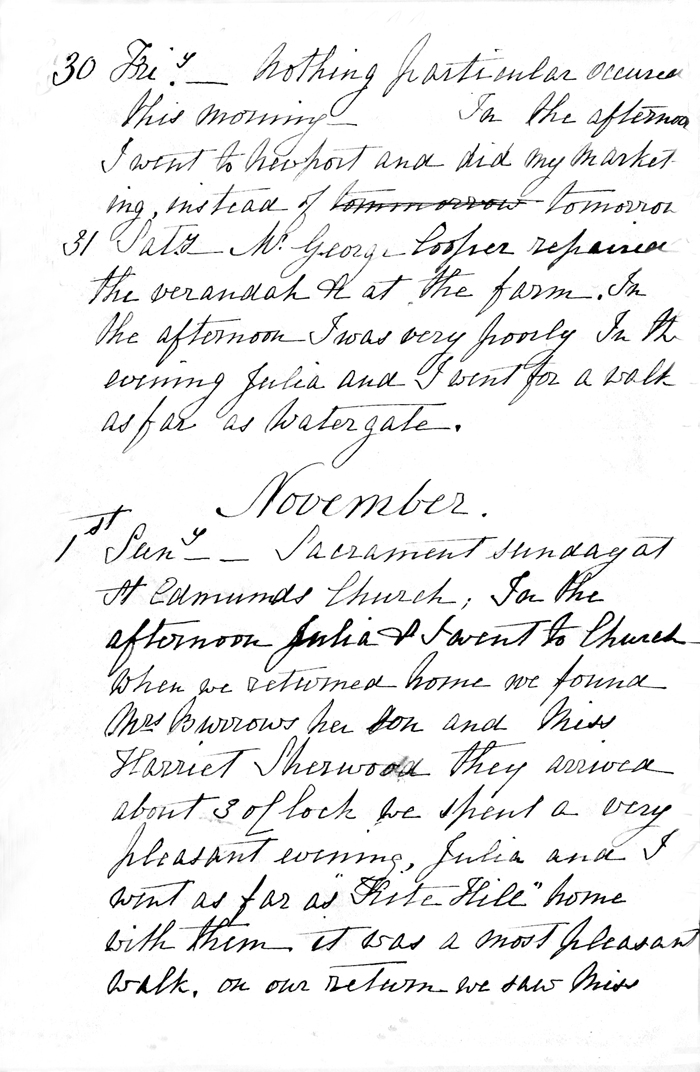 30 Fri.y — Nothing particular occured
this morning — In the afternoon
I went to Newport and did my market-
ing, instead of tommorrow tomorrow
31 Sat.y — Mr. George Cooper repaired
the verandah &c at the farm. In
the afternoon I was very poorly In the
evening Julia and I went for a walk
as far as Watergate.
November.
1st Sun.y — Sacrament sunday at
St Edmunds Church; In the
afternoon Julia & I went to Church
When we returned home we found
Mrs Burrows her Son and Miss
Harriet Sherwood they arrived
about 3 o'Clock we spent a very
pleasant evening, Julia and I
went as far as "Kite Hill" home
with them it was a most pleasant
walk. on our return we saw Miss